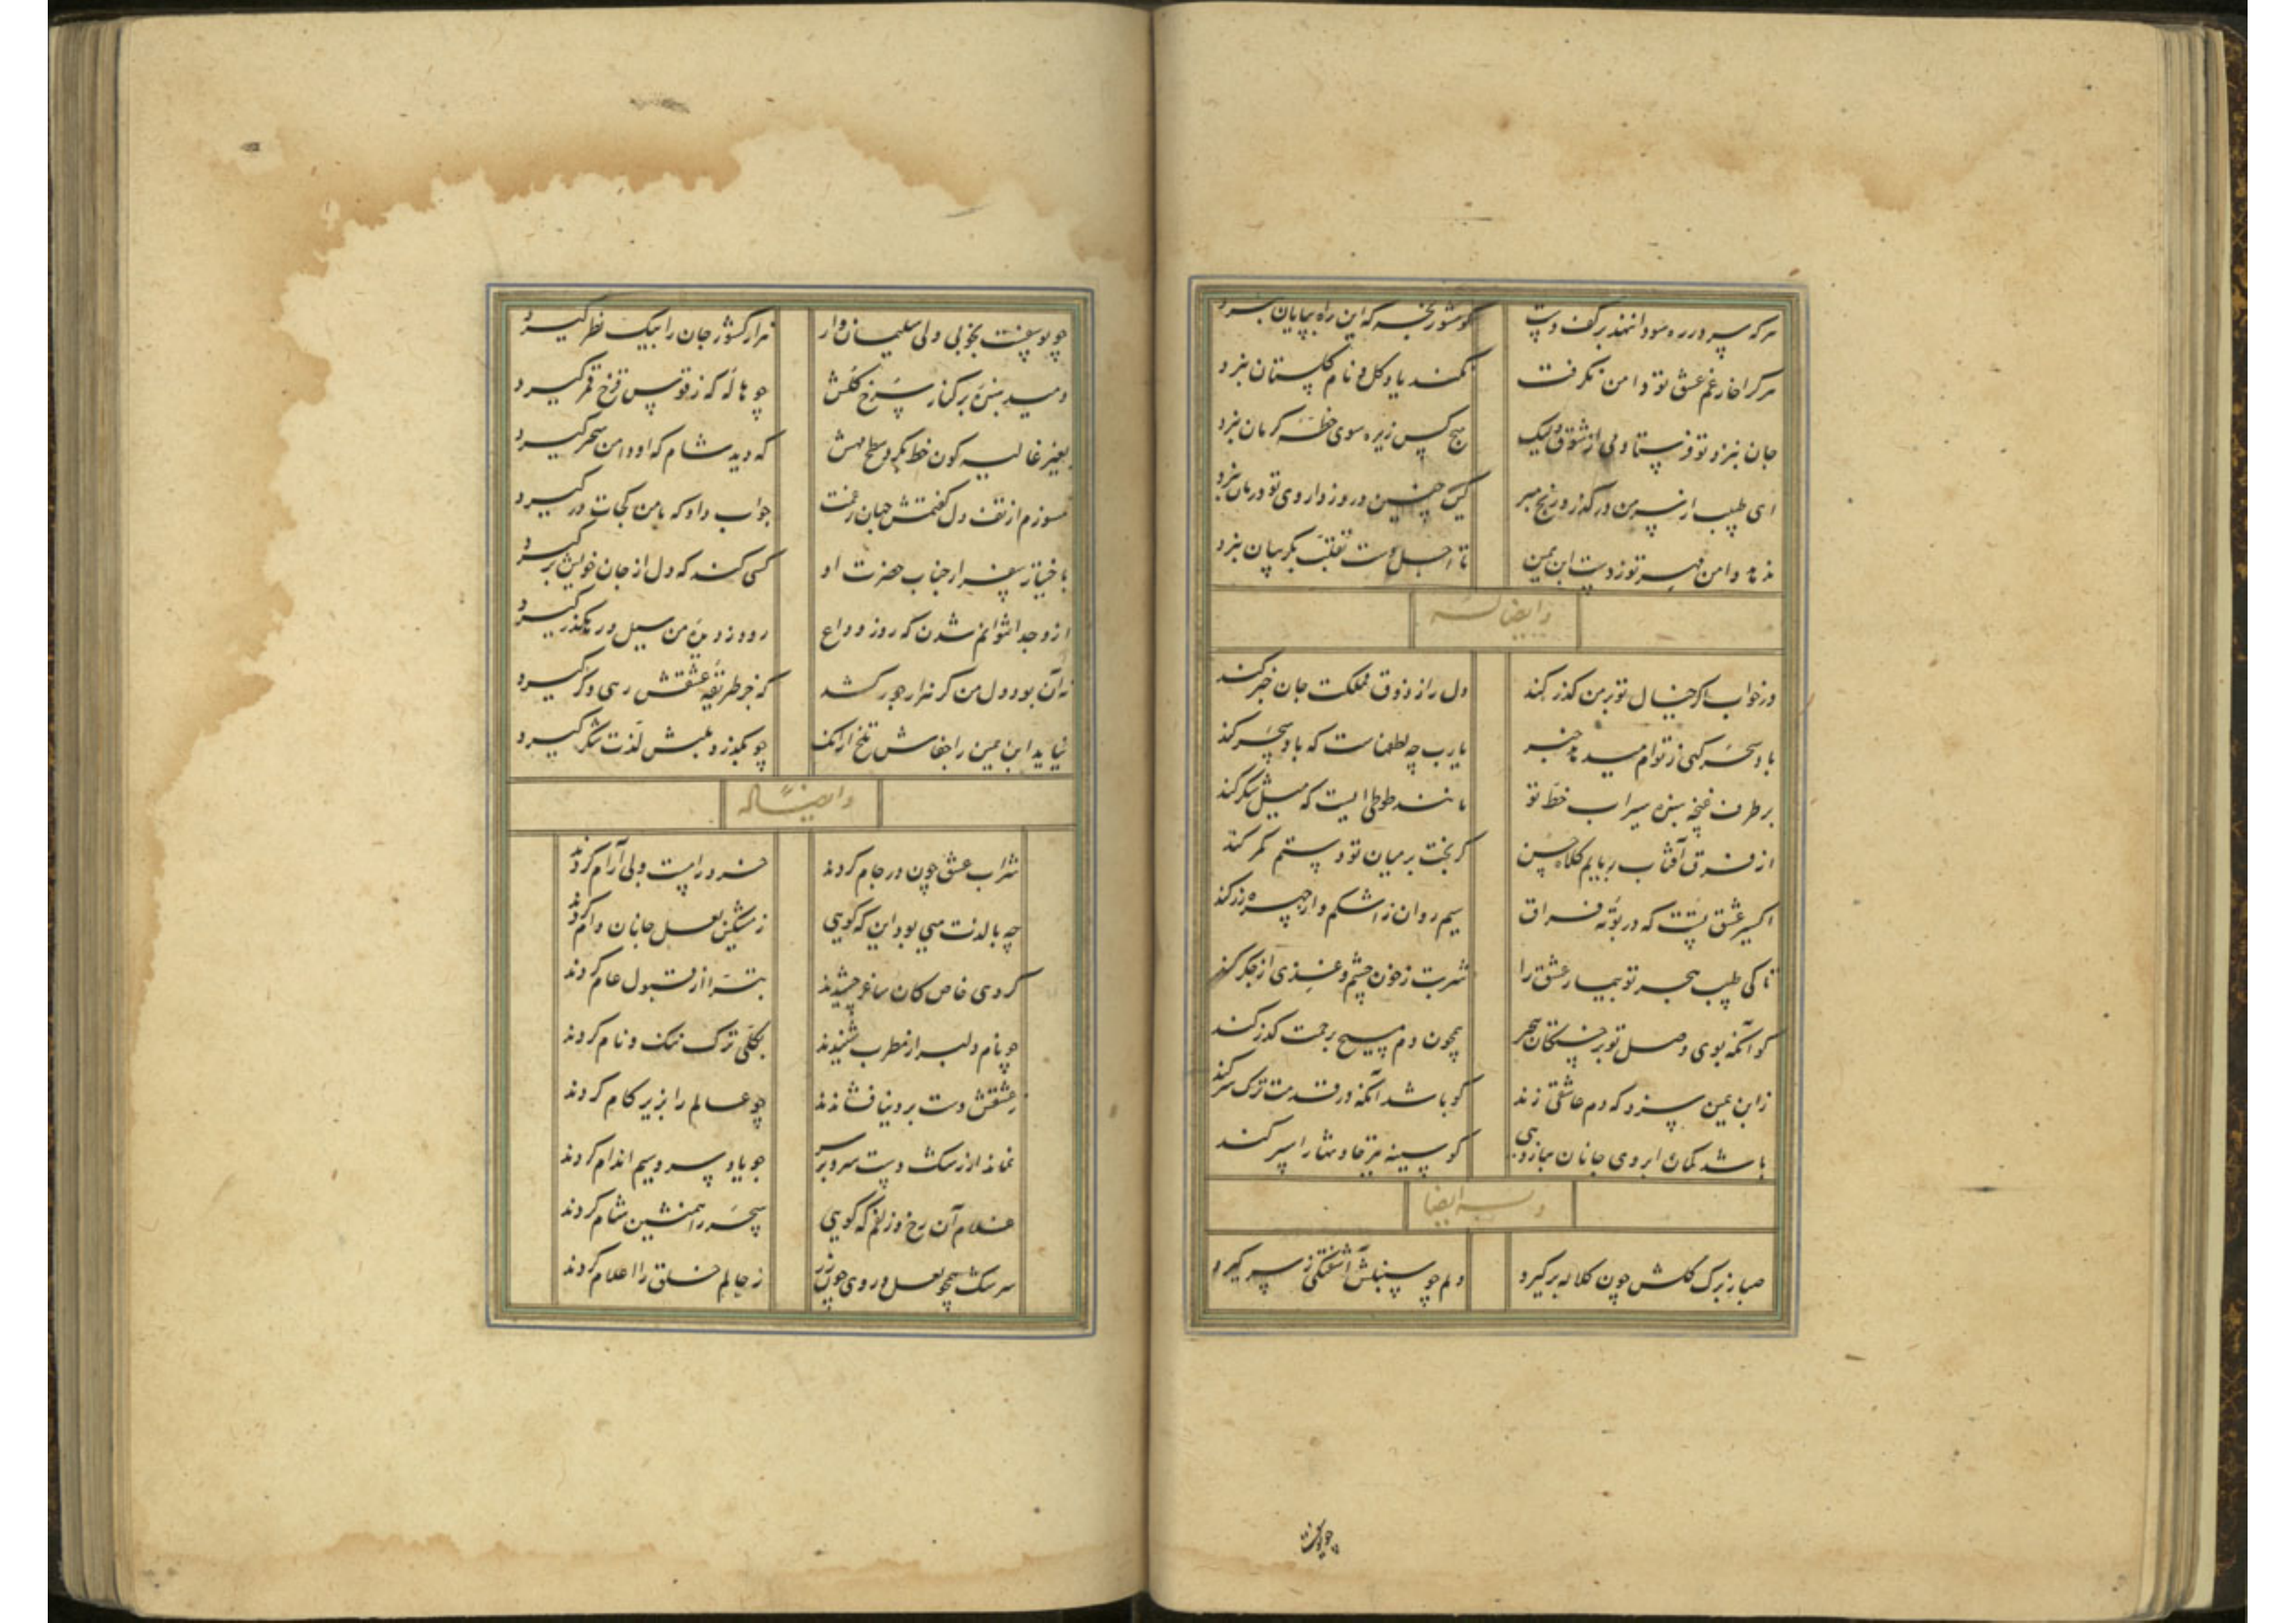 هرکه سر در ره سودا ننهد بر کف دست گو مشو رنجه که این راه بپایان نبرد
هرکرا خار غم عشق تو دامن نگرفت نکند یاد گل و نام گلستان نبرد
جان نبرد تو فرستادمی از شوق ولیک هیچ کس زیره سوی خطه کرمان نبرد
ای طبیب از سر من درگذر و رنج مبر کین چنین درد ز داروی تو درمان نبرد
ندهد دامن مهر تو ز دست ابن یمین تا اجل دست تغلب بگریبان نبرد
وایضا له
در خواب اگر خیال تو بر من گذر کند دل را ز ذوق مملکت جان خبر کند
باد سحر گهی ز تو ام میدهد خبر یارب چه لطفهاست که باد سحر کند
بر طرف غنچه سبزه سیراب خط تو مانند طوطی است که میل شکر کند
از فرق آفتاب ربایم کلاه حسن گر بخت بر میان تو دستم کمر کند
اکسیر عشق تست که در بوته فراق سیم روان ز اشکم و از چهره زر کند
تا کی طبیب هجر تو بیمار عشق را شربت ز خون چشم و غذی از جگر کند
کو آنکه بوی وصل تو بر خستگان هجر همچون دم مسیح برحمت گذر کند
ز ابن یمین سزد که دم عاشقی زند کو باشد آنکه در قدمت ترک سر کند
باشد کمان ابروی جانان ببازوی کو سینه تیر حادثها را سپر کند
وله ایضا
صبا ز برگ گلش چون کلاله برگیرد دلم چو سنبلش آشفتگی ز سر گیرد
چو یوسفست
چو یوسفست بخوبی ولی سلیمان وار هزار کشور جان را بیک نظر گیرد
دمید سبزه بر کنار سرخ گلش چو هاله که ز قوس قزح قمر گیرد
بغیر غالیه گون خط بگرد سطح مهش که دید شام که او دامن سحر گیرد
بسوزم از تف دل گفتمش جهان گفت جواب داد که با من کجات در گیرد
باختیار سفر از جناب حضرت او کسی کند که دل از جان خویش بر گیرد
ازو جدا نتوانم شدن که روز وداع رود ز دیده من سیل و رهگذر گیرد
نه آن بود دل من گر هزار جور کشد که جز طریقه عشقش رهی دگر گیرد
نیاید ابن یمین را جفاش تلخ از آنک چو بگذرد بلبش لذت شکر گیرد
وایضا له
شراب عشق چون در جام کردند خرد را مست و بی آرام کردند
چه با لذت میی بود این که گویی ز مشکین لعل جانان وام کردند
گروهی خاص کان ساغر چشیدند تبرا از قبول عام کردند
چو نام دلبر از مطرب شنیدند بکلی ترک ننگ و نام کردند
ز عشقش دست بر دنیا فشاندند چو عالم را بزیر کام کردند
نماند از رشک دست سرو بر سر چو یاد سرو سیم اندام کردند
غلام آن رخ و زلفم که گویی سحر را همنشین شام کردند
سرشک همچو لعل و روی چون زر ز حالم خلق را اعلام کردند